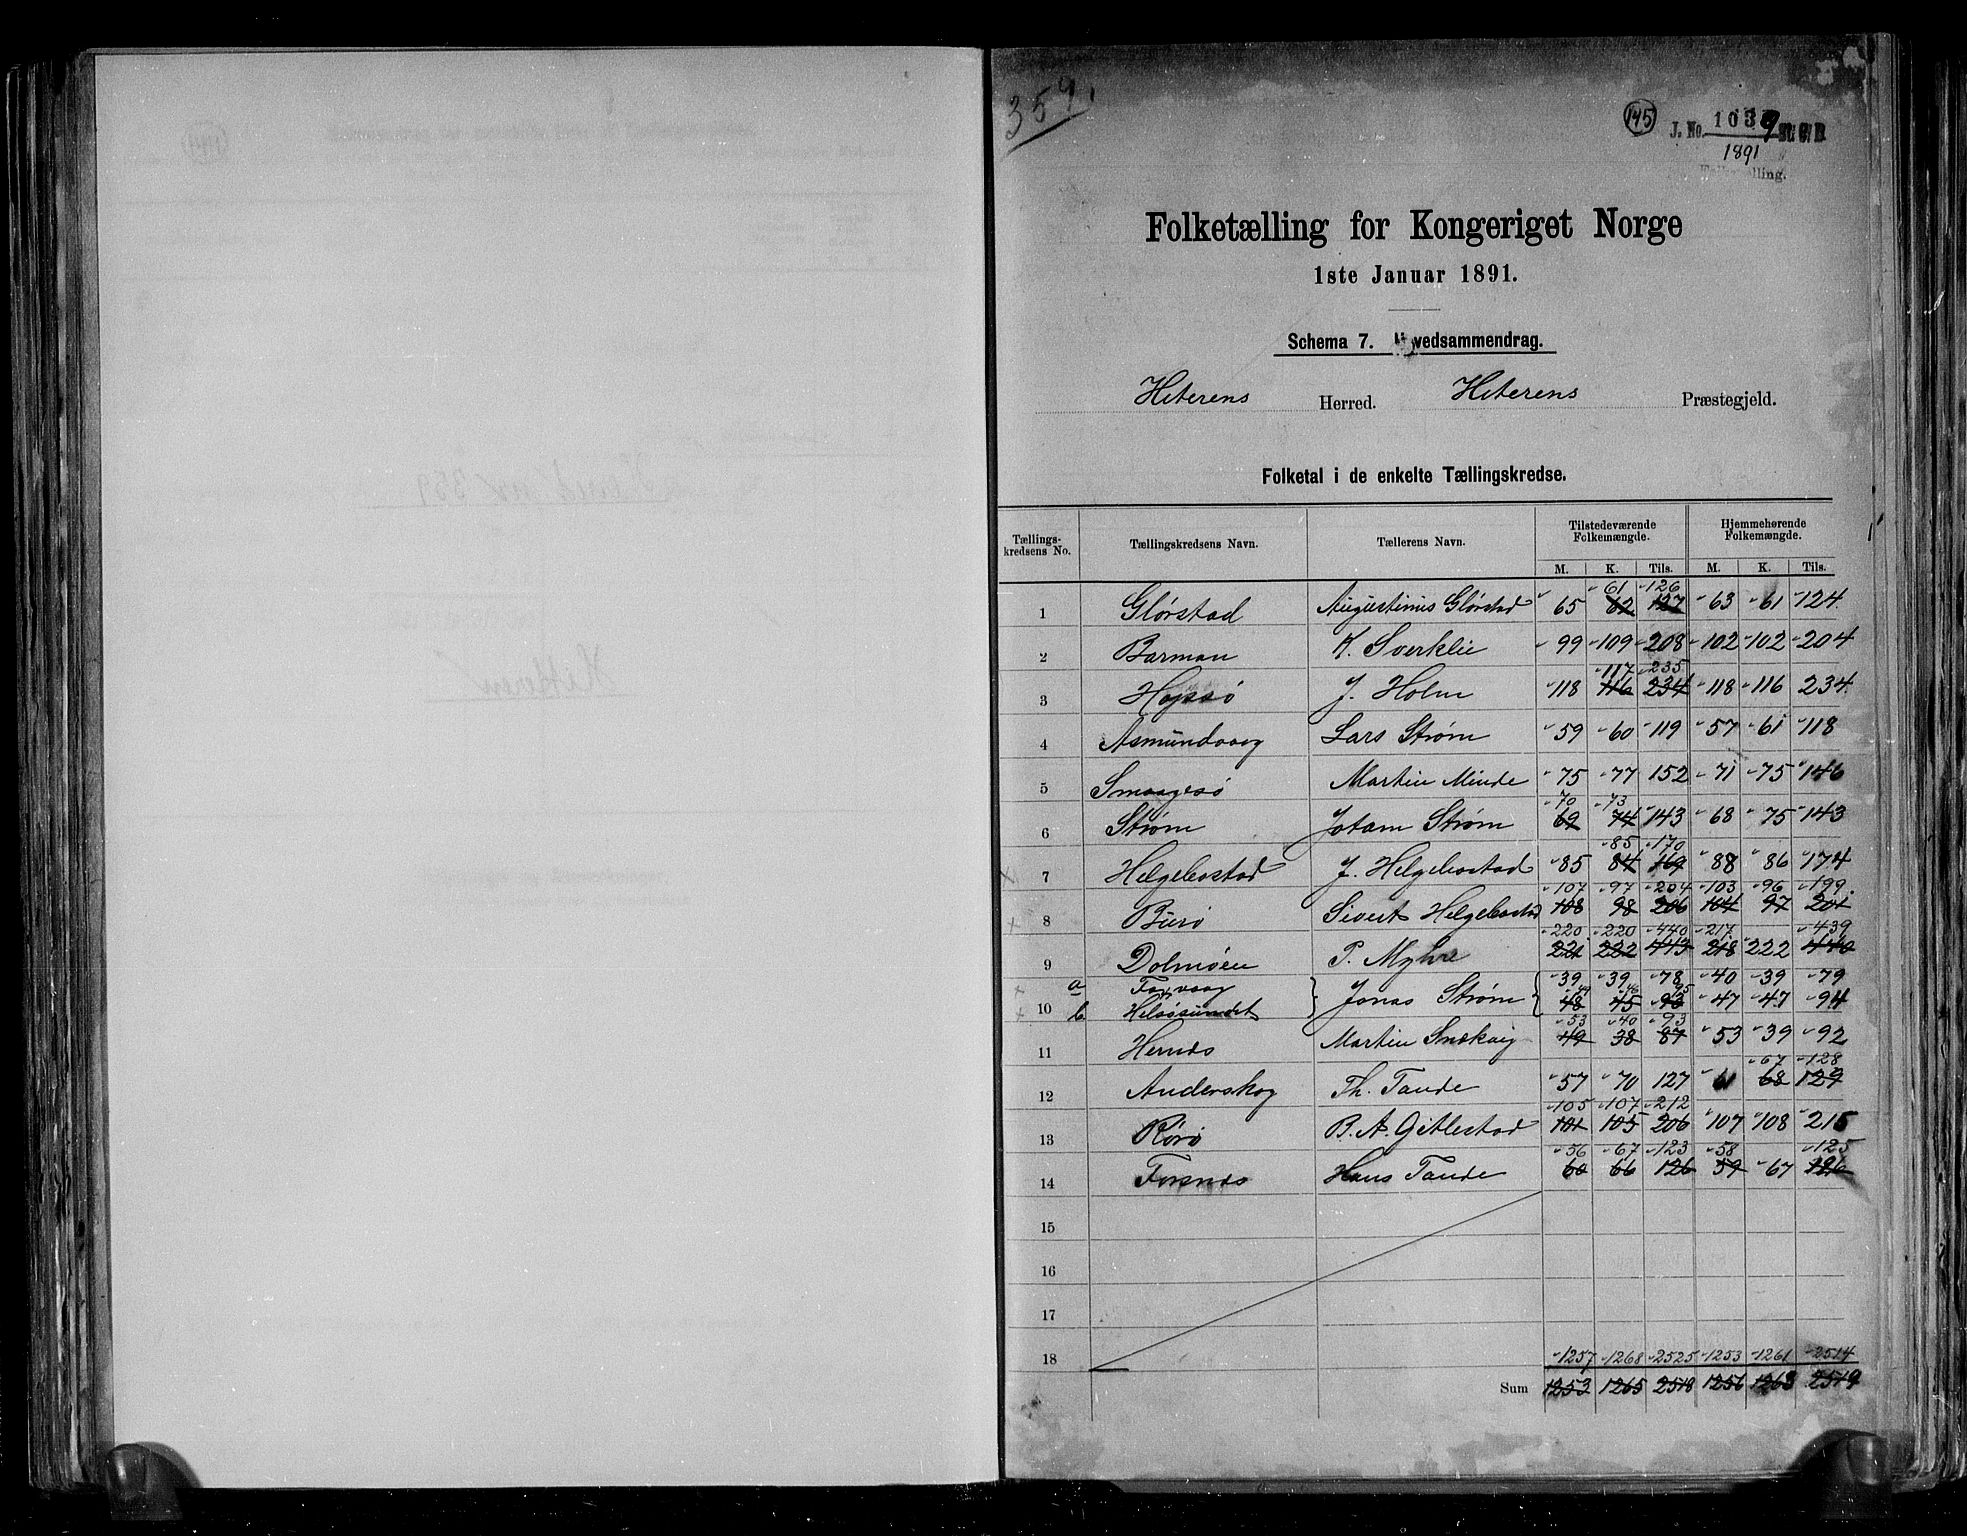 359.
145
J. No. 1039
1891
Folketælling for Kongeriget Norge
1ste Januar 1891.
Schema 7. Hovedsammendrag.
Hiterens Herred. Hiterens Præstegjeld.
Folketal i de enkelte Tællingskredse.
Tællingskredsens No. Tællingskredsens Navn. Tællerens Navn. Tilstedeværende Folkemængde. Hjemmehørende Folkemængde.
M. K. Tils. M. K. Tils.
61 126
1 Glørstad Augustinus Glørstad 65 62 127 63 61 124.
2 Barman K. Sverklie 99 109 208 102 102 204
117 235
3 Hopsø J. Holm 118 116 234 118 116 234.
4 Asmundvaag Lars Strøm 59 60 119 57 61 118
5 Smaagesø Martin Minde 75 77 152 71 75 146
70 73
6 Strøm Jotam Strøm 69 74 143 68 75 143
85 170
7 Helgebostad J. Helgebostad 85 84 169 88 86 174
107 97 204 103 96 199.
8 Burø Sivert Helgebostad 108 98 206 104 97 201
220 220 440 217 439
9 Dolmøen P. Myhre 221 222 443 218 222 440
a Faxvaag 39 39 78 40 39 79
10 b Helsøsundet Jonas Strøm 48 45 93 47 47 94
53 40 93
11 Hernæs Martin Snekvig 49 38 87 53 39 92
67 128
12 Anderskog Th. Tande 57 70 127 61 68 129
105 107 212
13 Rørø B. A. Gitlestad 101 105 206 107 108 215
56 67 123 58 125
14 Forsnæs Hans Tande 60 66 126 59 67 126
15
16
17
18 1257 1268 2525 1253 1261 2514
Sum 1253 1265 2518 1256 1263 2519